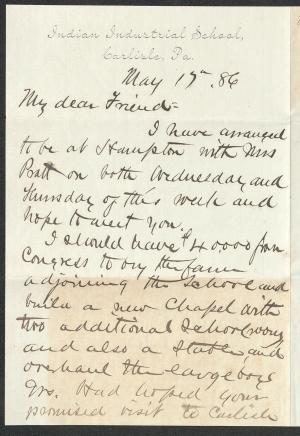 Indian Industrial School,
Carlisle, Pa.
May 17. 86
My dear Friend:-
I have arranged
to be at Hampton with Mrs
Pratt on both Wednesday and
Thursday of this week and
hope to meet you.
I should have $40000 from
Congress to buy the farm
adjoining the School and
build a new Chapel with
two additional School rooms
and also a Stable, and
overhaul the large boys
Qrs. Had hoped your
promised visit to Carlisle